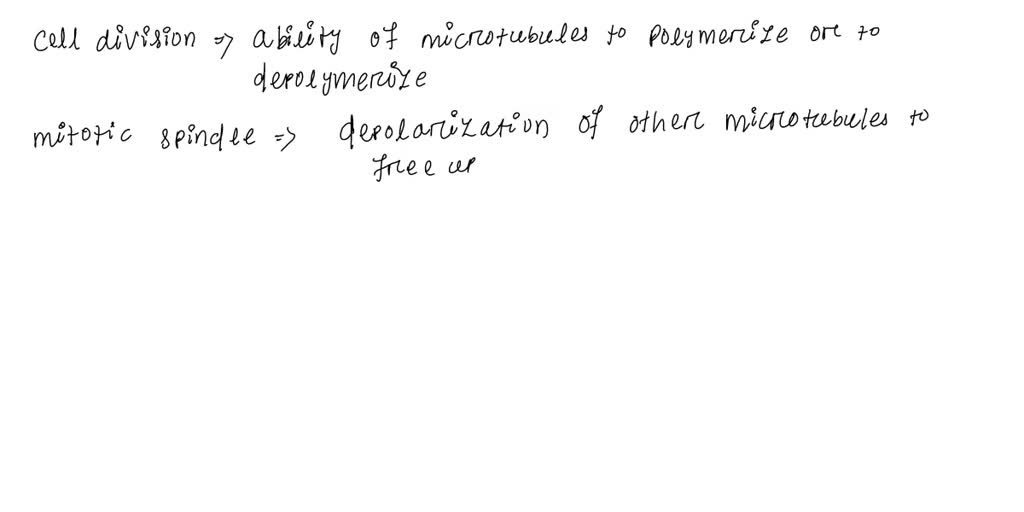 cell division => ability of microtubules to polymerize or to
depolymerize
mitotic spindle => depolarization of other microtubules to
free up